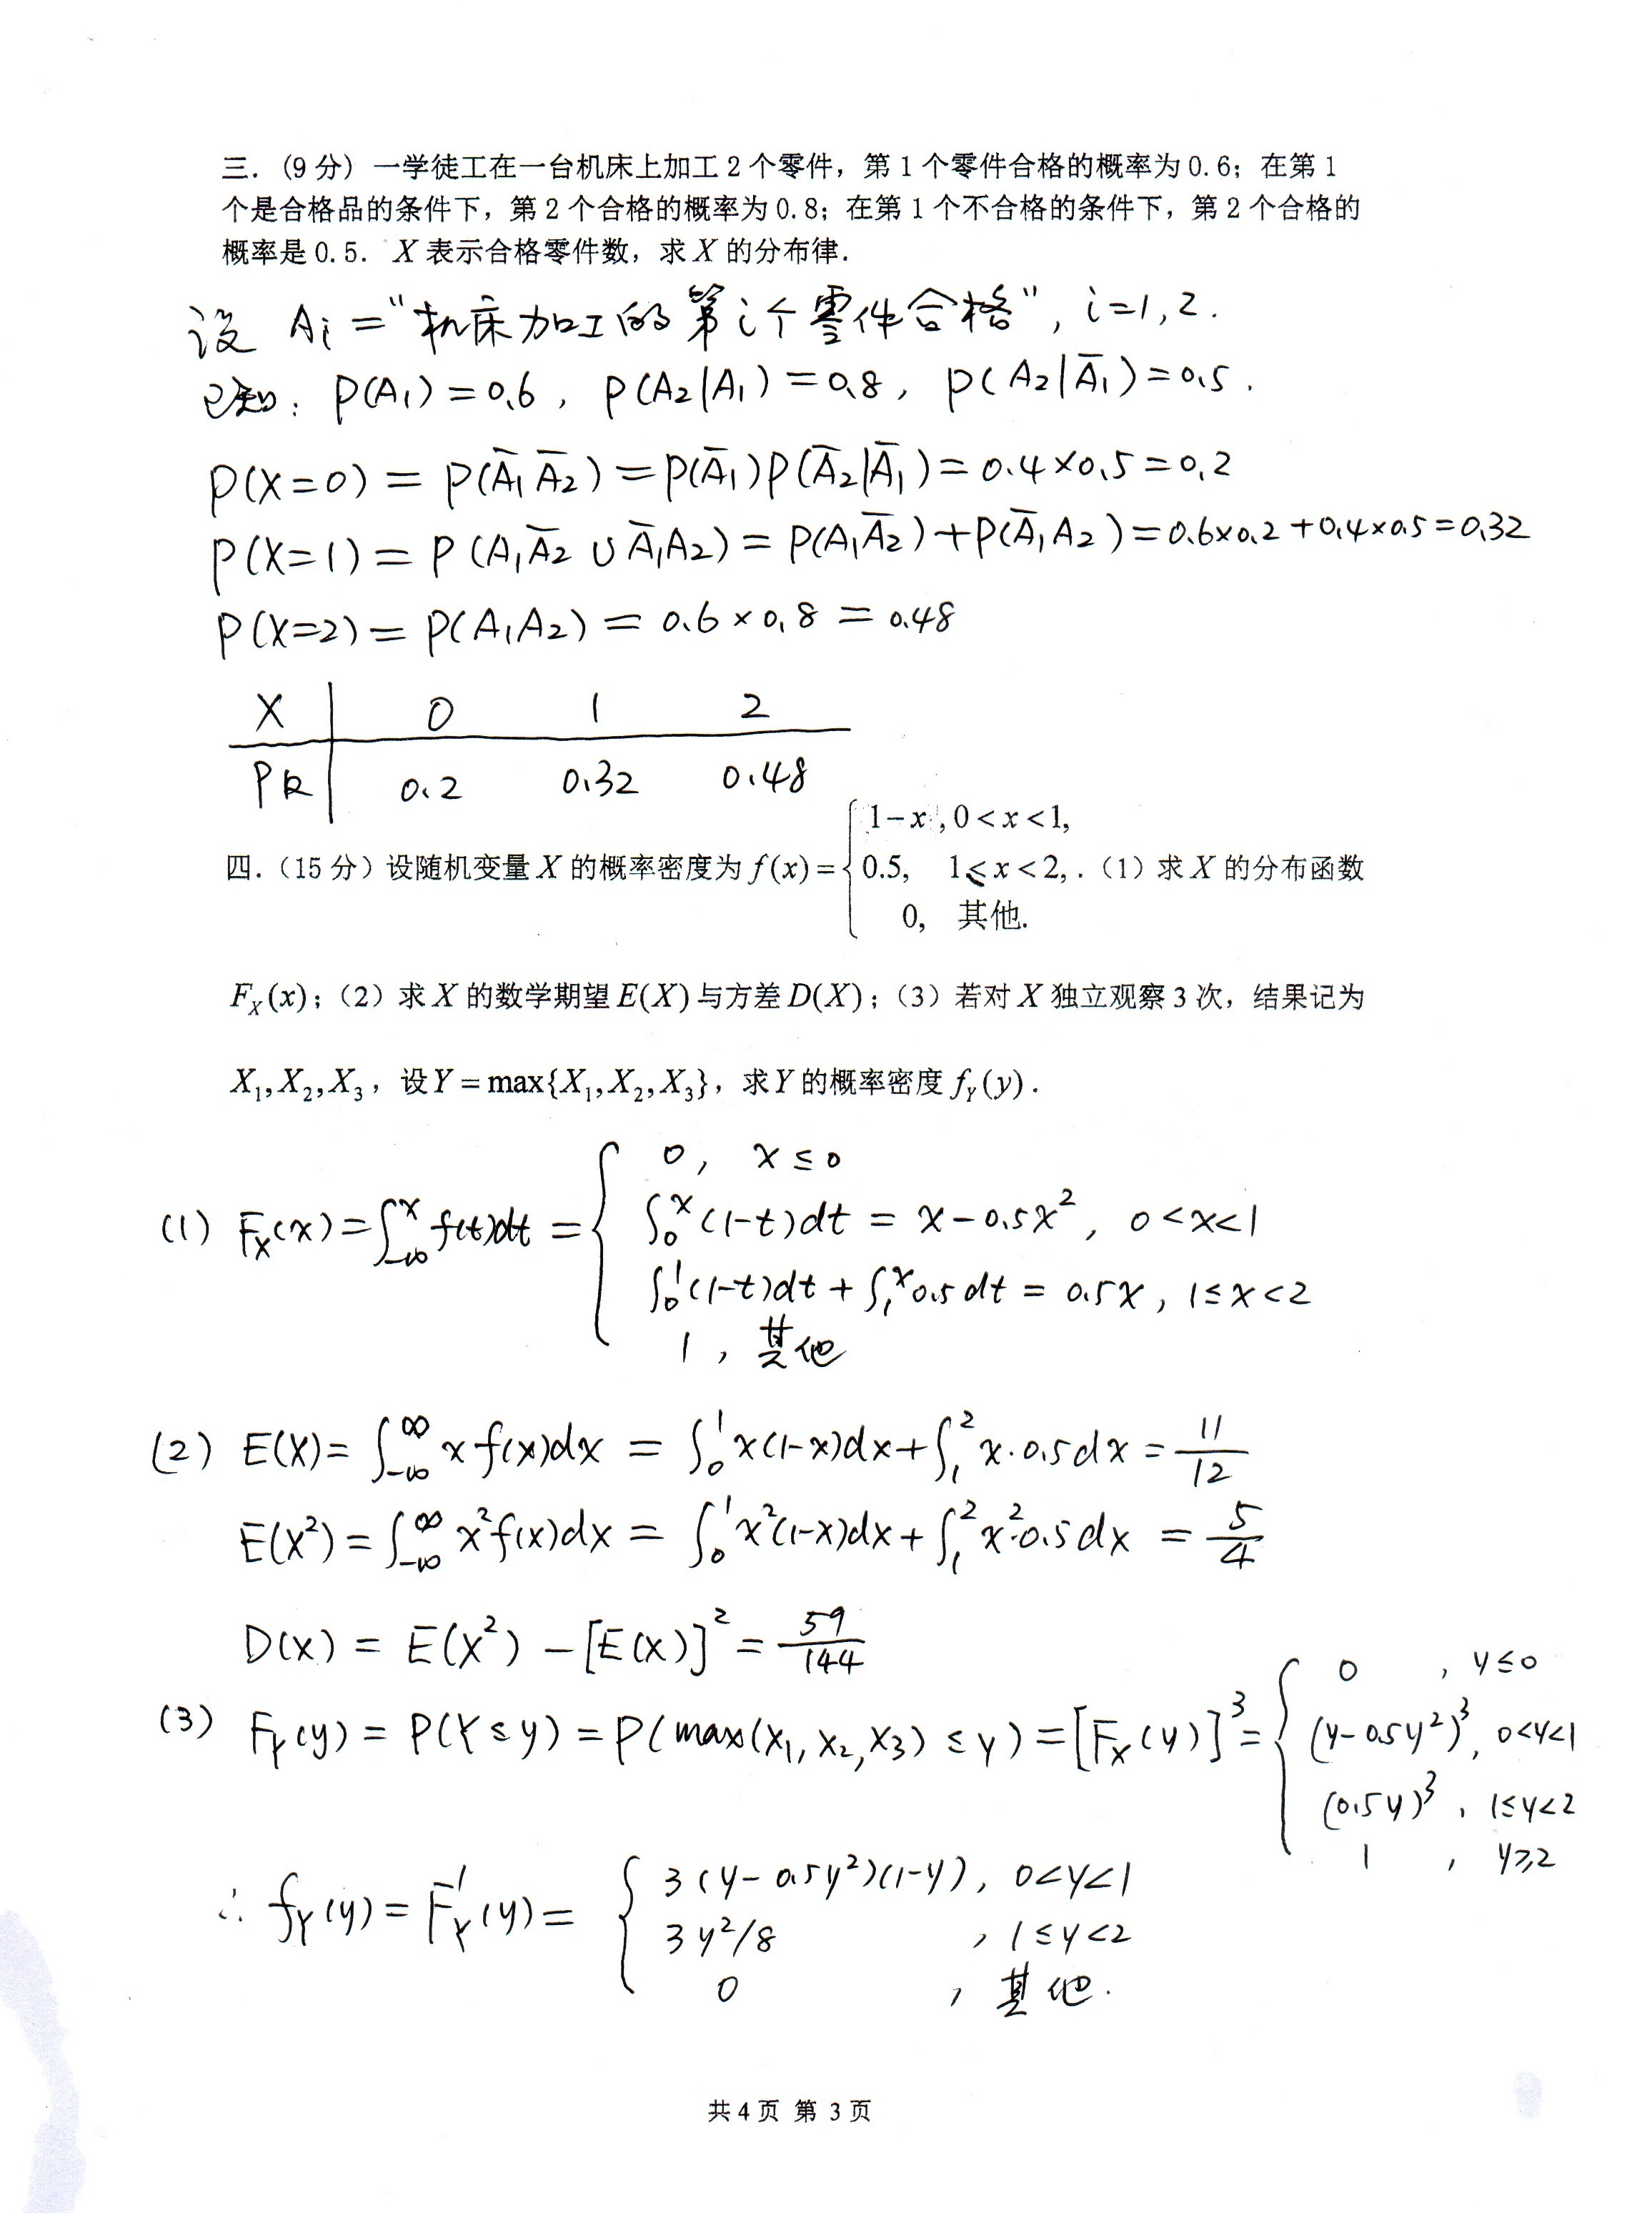 三. (9 分) 一学徒工在一台机床上加工 2 个零件，第 1 个零件合格的概率为 0.6；在第 1
个是合格品的条件下，第 2 个合格的概率为 0.8；在第 1 个不合格的条件下，第 2 个合格的
概率是 0.5. X 表示合格零件数，求 X 的分布律.
设 Ai = "机床加工的第 i 个零件合格", i=1,2.
已知: P(A₁)=0.6, P(A₂|A₁)=0.8, P(A₂|Ā₁)=0.5.
P(X=0) = P(Ā₁Ā₂) = P(Ā₁)P(Ā₂|Ā₁) = 0.4×0.5 = 0.2
P(X=1) = P(A₁Ā₂ ∪ Ā₁A₂) = P(A₁Ā₂)+P(Ā₁A₂) = 0.6×0.2+0.4×0.5 = 0.32
P(X=2) = P(A₁A₂) = 0.6×0.8 = 0.48
X | 0 1 2
Pk | 0.2 0.32 0.48
四.（15 分）设随机变量 X 的概率密度为 f(x) = { 1−x, 0<x<1,
0.5, 1≤x<2, .（1）求 X 的分布函数
0, 其他.
F_X(x)；（2）求 X 的数学期望 E(X) 与方差 D(X)；（3）若对 X 独立观察 3 次，结果记为
X₁, X₂, X₃，设 Y = max{X₁, X₂, X₃}，求 Y 的概率密度 f_Y(y).
(1) F_X(x) = ∫_{-∞}^{x} f(t)dt = { 0, x≤0
∫₀^x (1-t)dt = x-0.5x², 0<x<1
∫₀¹(1-t)dt + ∫₁^x 0.5dt = 0.5x, 1≤x<2
1, 其他
(2) E(X) = ∫_{-∞}^{∞} x f(x)dx = ∫₀¹ x(1-x)dx + ∫₁² x·0.5dx = 11/12
E(X²) = ∫_{-∞}^{∞} x²f(x)dx = ∫₀¹ x²(1-x)dx + ∫₁² x²·0.5dx = 5/4
D(X) = E(X²) − [E(X)]² = 59/144
(3) F_Y(y) = P(Y≤y) = P(max(X₁,X₂,X₃)≤y) = [F_X(y)]³ = { 0, y≤0
(y-0.5y²)³, 0<y<1
(0.5y)³, 1≤y<2
1, y≥2
∴ f_Y(y) = F'_Y(y) = { 3(y-0.5y²)(1-y), 0<y<1
3y²/8, 1≤y<2
0, 其他.
共 4 页 第 3 页